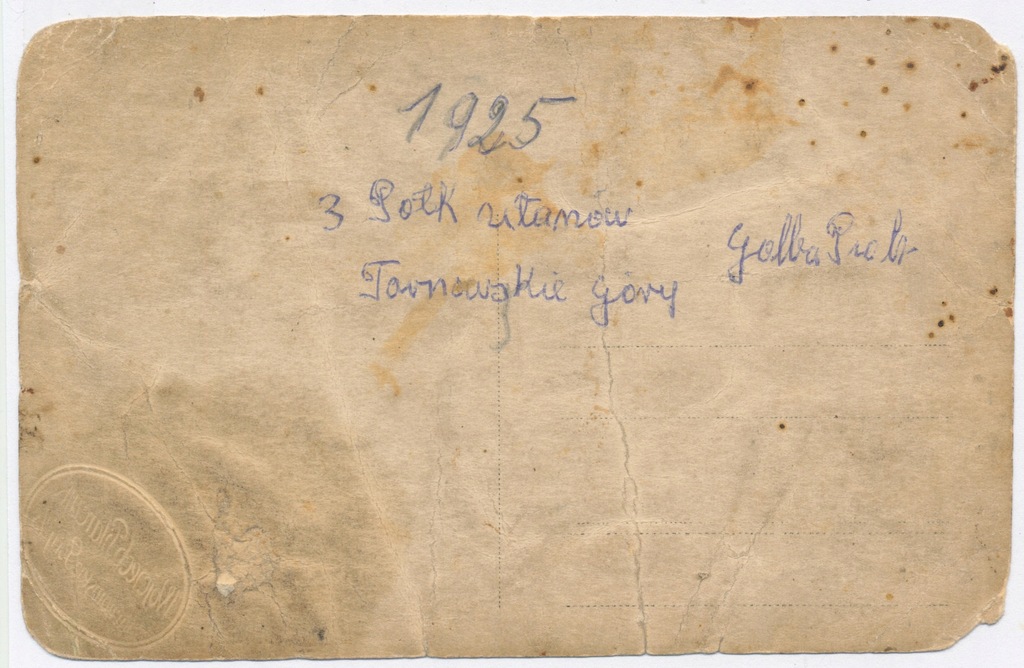 1925
3 Połk ułanów
Tarnowskie Góry
Golba Piotr